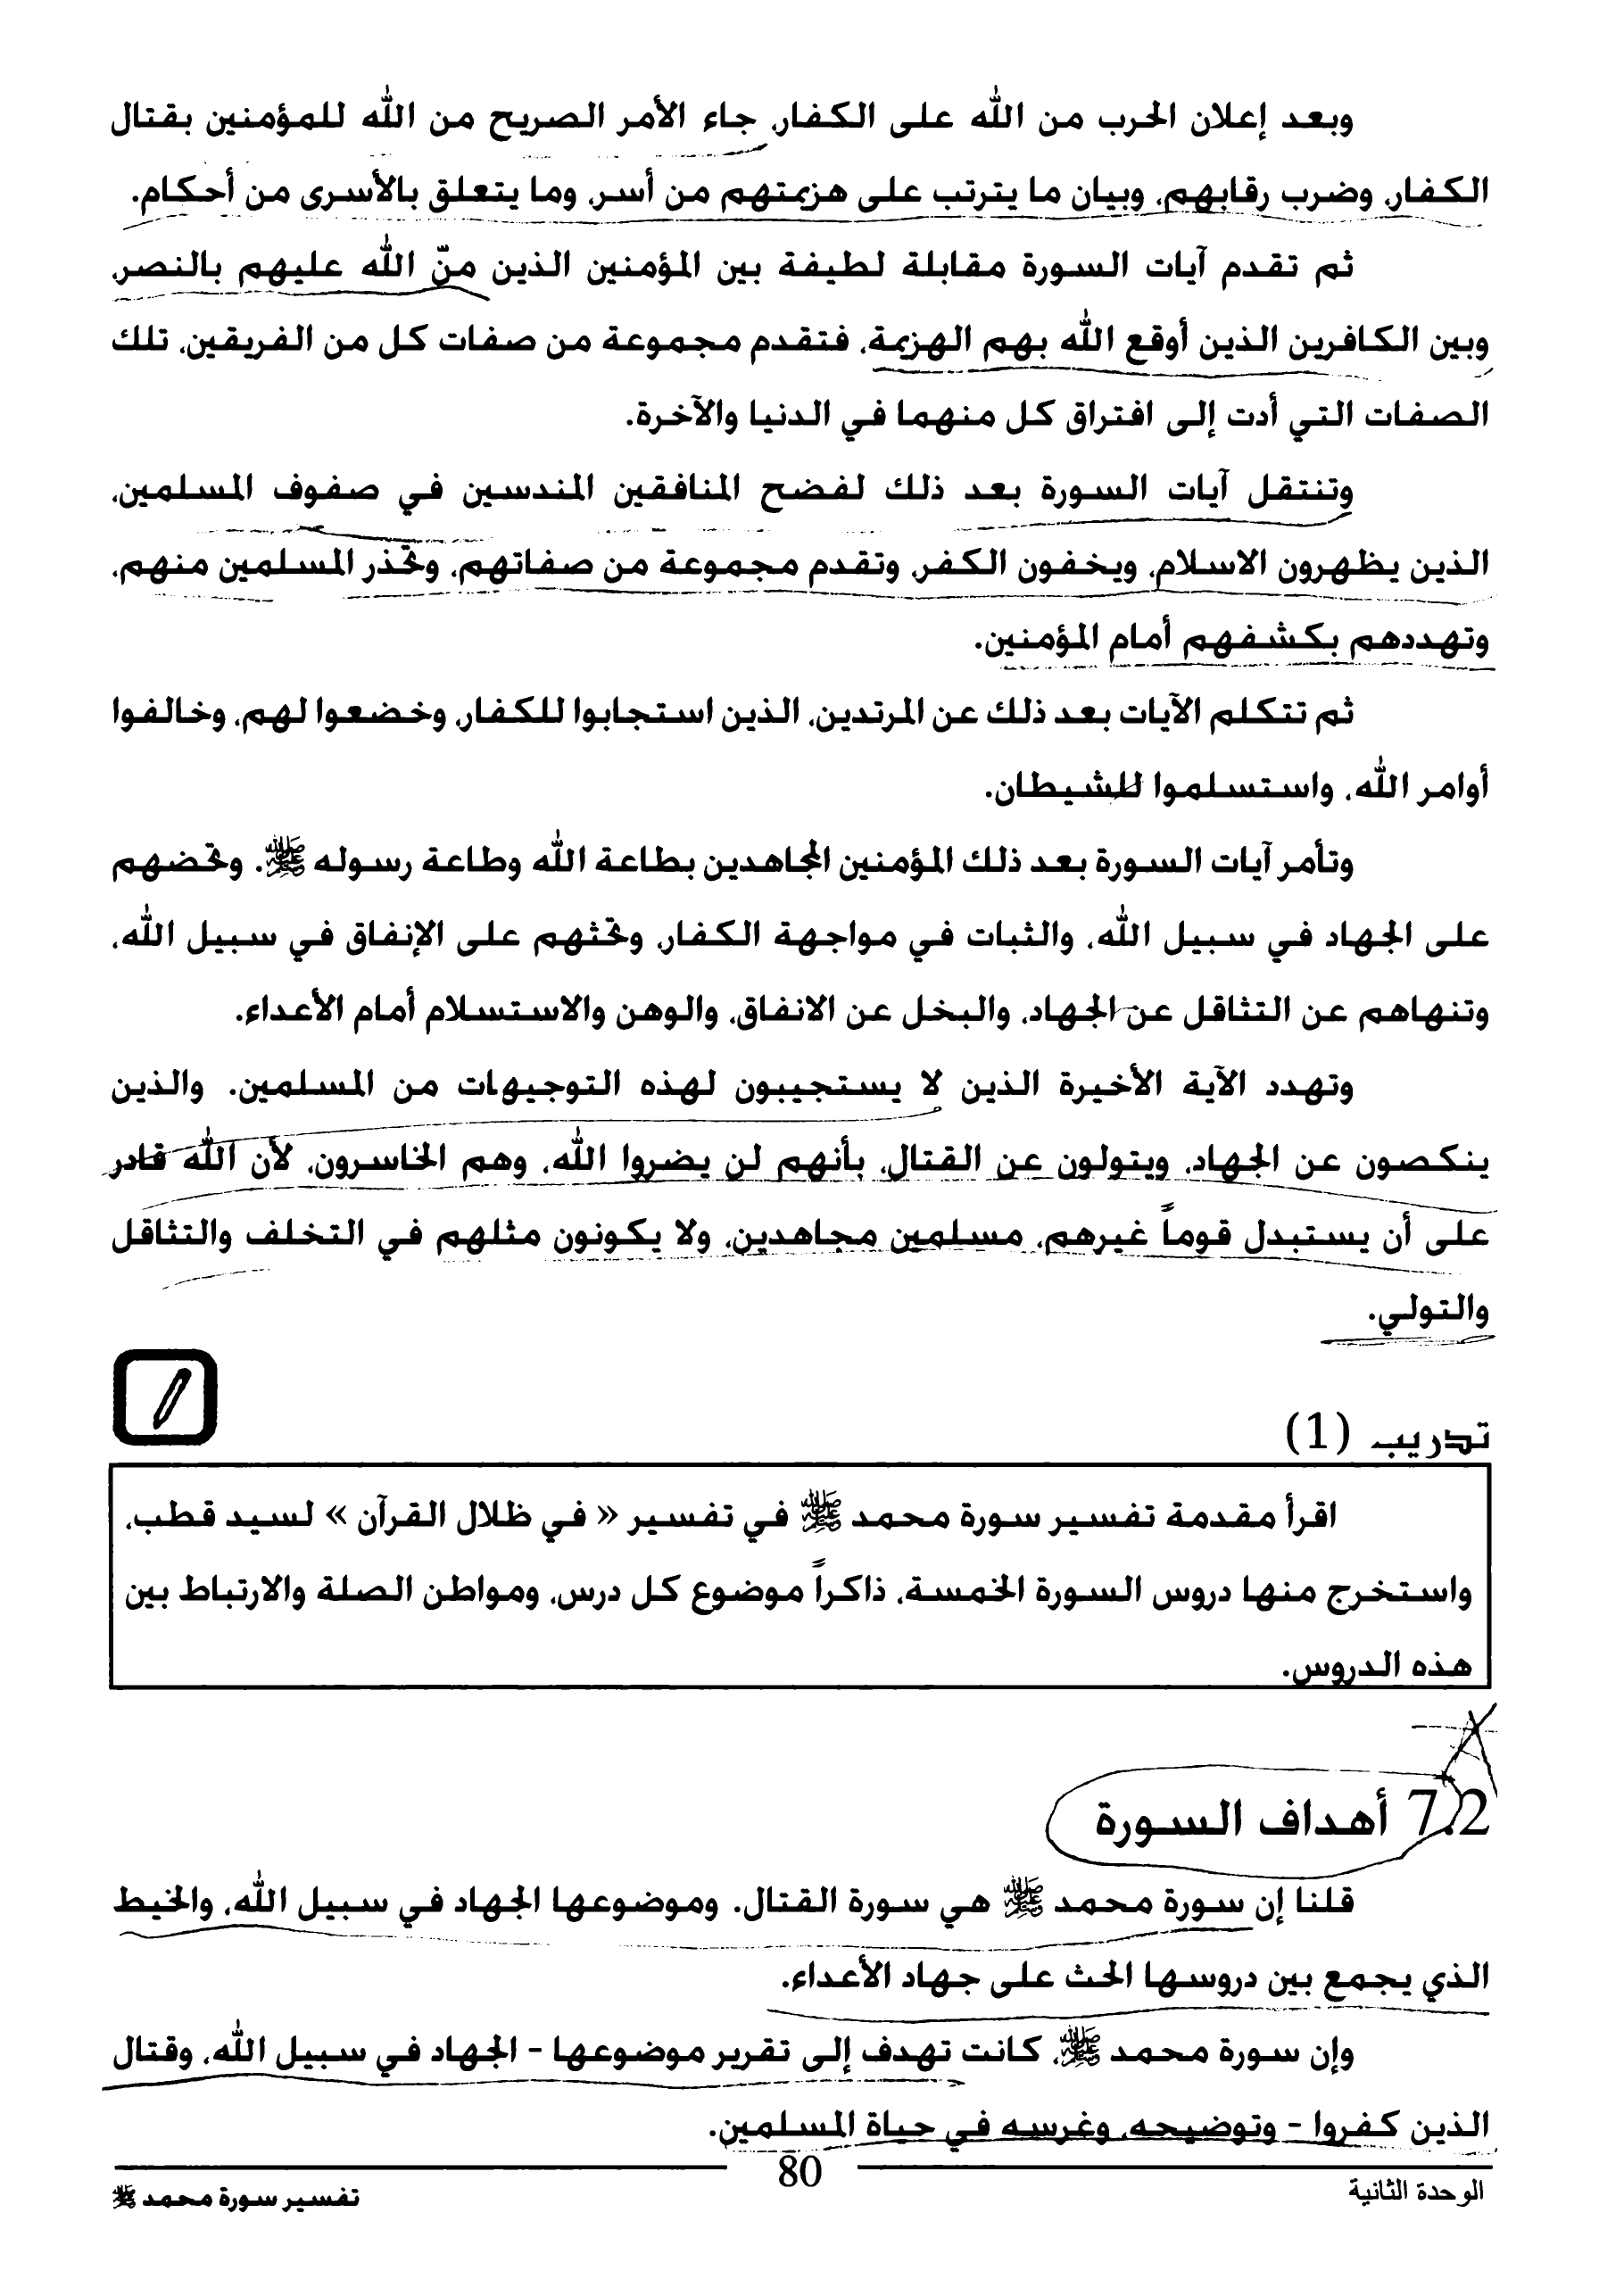 وبعد إعلان الحرب من الله على الكفار، جاء الأمر الصريح من الله للمؤمنين بقتال
الكفار، وضرب رقابهم، وبيان ما يترتب على هزيمتهم من أسر، وما يتعلق بالأسرى من أحكام.
ثم تقدم آيات السورة مقابلة لطيفة بين المؤمنين الذين منّ الله عليهم بالنصر،
وبين الكافرين الذين أوقع الله بهم الهزيمة، فتقدم مجموعة من صفات كل من الفريقين، تلك
الصفات التي أدت إلى افتراق كل منهما في الدنيا والآخرة.
وتنتقل آيات السورة بعد ذلك لفضح المنافقين المندسين في صفوف المسلمين،
الذين يظهرون الاسلام، ويخفون الكفر، وتقدم مجموعة من صفاتهم، وتحذر المسلمين منهم،
وتهددهم بكشفهم أمام المؤمنين.
ثم تتكلم الآيات بعد ذلك عن المرتدين، الذين استجابوا للكفار، وخضعوا لهم، وخالفوا
أوامر الله، واستسلموا للشيطان.
وتأمر آيات السورة بعد ذلك المؤمنين المجاهدين بطاعة الله وطاعة رسوله ﷺ. وتحضهم
على الجهاد في سبيل الله، والثبات في مواجهة الكفار، وتحثهم على الإنفاق في سبيل الله،
وتنهاهم عن التثاقل عن الجهاد، والبخل عن الانفاق، والوهن والاستسلام أمام الأعداء.
وتهدد الآية الأخيرة الذين لا يستجيبون لهذه التوجيهات من المسلمين. والذين
ينكصون عن الجهاد، ويتولون عن القتال، بأنهم لن يضروا الله، وهم الخاسرون، لأن الله قادر
على أن يستبدل قوماً غيرهم، مسلمين مجاهدين، ولا يكونون مثلهم في التخلف والتثاقل
والتولي.
تدريب (1)
اقرأ مقدمة تفسير سورة محمد ﷺ في تفسير « في ظلال القرآن » لسيد قطب،
واستخرج منها دروس السورة الخمسة، ذاكراً موضوع كل درس، ومواطن الصلة والارتباط بين
هذه الدروس.
7.2 أهداف السورة
قلنا إن سورة محمد ﷺ هي سورة القتال. وموضوعها الجهاد في سبيل الله، والخيط
الذي يجمع بين دروسها الحث على جهاد الأعداء.
وإن سورة محمد ﷺ، كانت تهدف إلى تقرير موضوعها - الجهاد في سبيل الله، وقتال
الذين كفروا - وتوضيحه، وغرسه في حياة المسلمين.
الوحدة الثانية
80
تفسير سورة محمد ﷺ